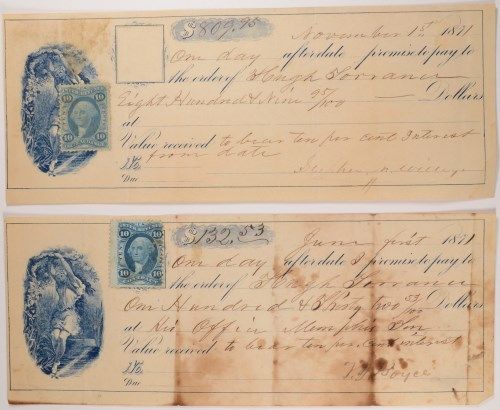 $809.95
November 1st 1871
One day after date promise to pay to
the order of Hugh Torrance
Eight Hundred & Nine 95/100 Dollars
at
Value received to bear ten per cent Interest
from date
No.
Due
10 10
$132.53
June first 1871
One day after date I promise to pay to
the order of Hugh Torrance
One Hundred & Thirty two 53/100 Dollars
at His Office Memphis Tenn
Value received to bear ten per cent interest
No. T. J. Boyce
Due
10 10